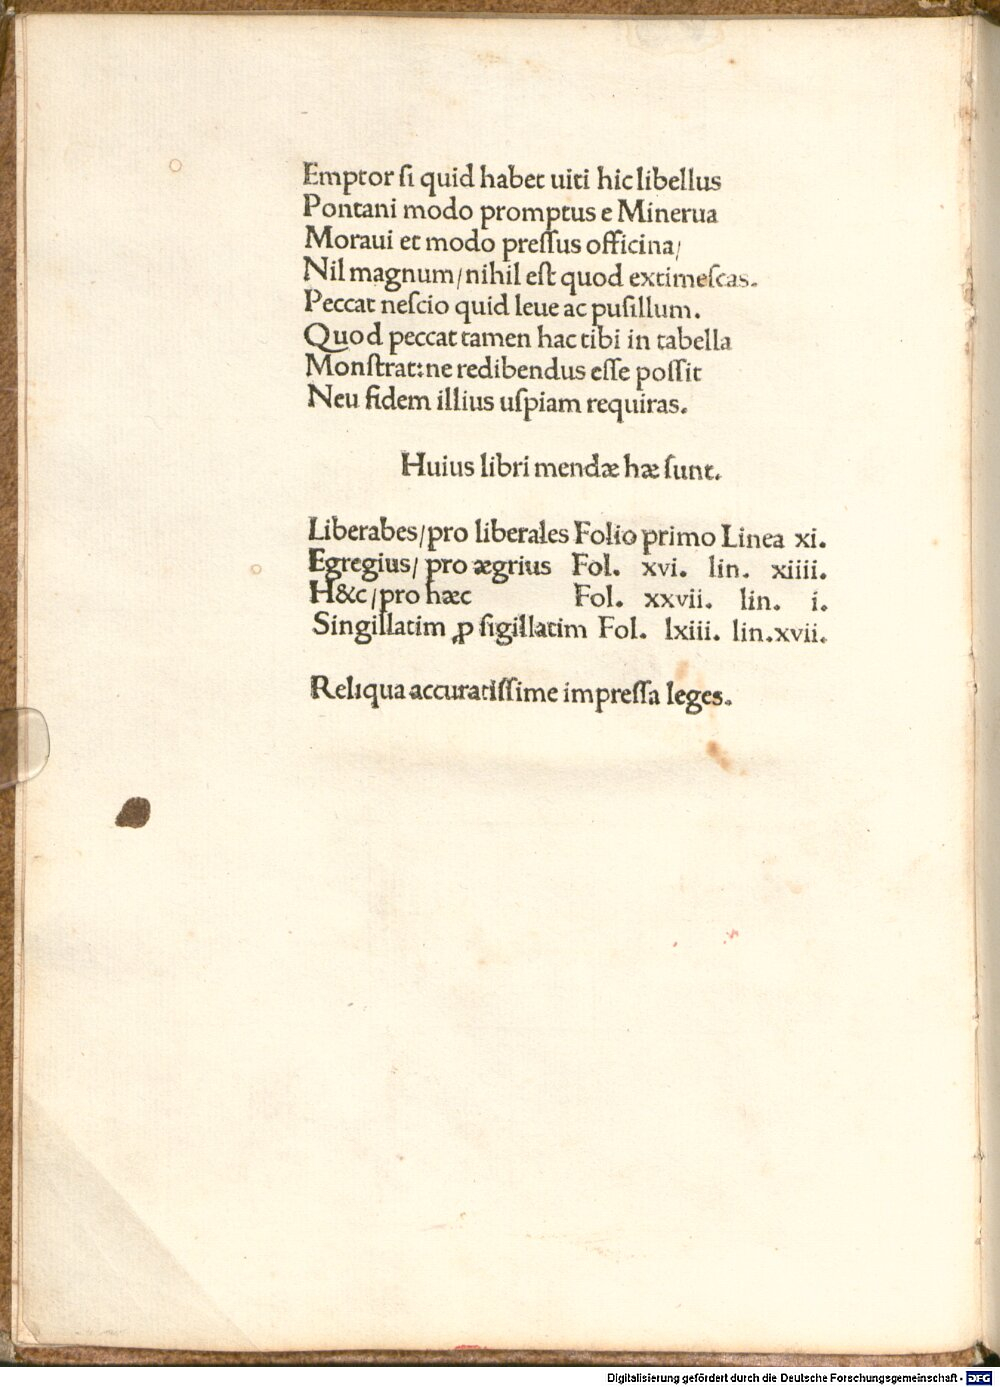 Emptor ſi quid habet uiti hic libellus
Pontani modo promptus e Minerua
Moraui et modo preſſus officina/
Nil magnum/nihil eſt quod extimeſcas.
Peccat neſcio quid leue ac puſillum.
Quod peccat tamen hac tibi in tabella
Monſtrat:ne redibendus eſſe poſſit
Neu fidem illius uſpiam requiras.
Huius libri mendæ hæ ſunt.
Liberabes/pro liberales Folio primo Linea xi.
Egregius/ pro ægrius Fol. xvi. lin. xiiii.
H&c/pro hæc Fol. xxvii. lin. i.
Singillatim ꝓ ſigillatim Fol. lxiii. lin.xvii.
Reliqua accuratiſſime impreſſa leges.
Digitalisierung gefördert durch die Deutsche Forschungsgemeinschaft - DFG